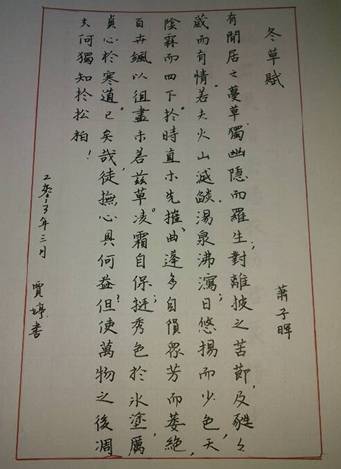 冬草賦
蕭子暉
有閒居之蔓草,獨幽隱而羅生;對離披之苦節,及甤々
葳而有情。若夫火山滅燄,湯泉沸瀉;日悠揚而少色,天
陰霖而四下。於時直木先摧,曲蓬多自隕眾芳而萎絕,
百卉颯以徂盡。未若茲草凌霜自保;挺秀色於冰塗,厲
貞心於寒道。已矣哉,徒撫心具何益?但使萬物之後凋
夫何獨知於松柏!
年三月 賈婷書